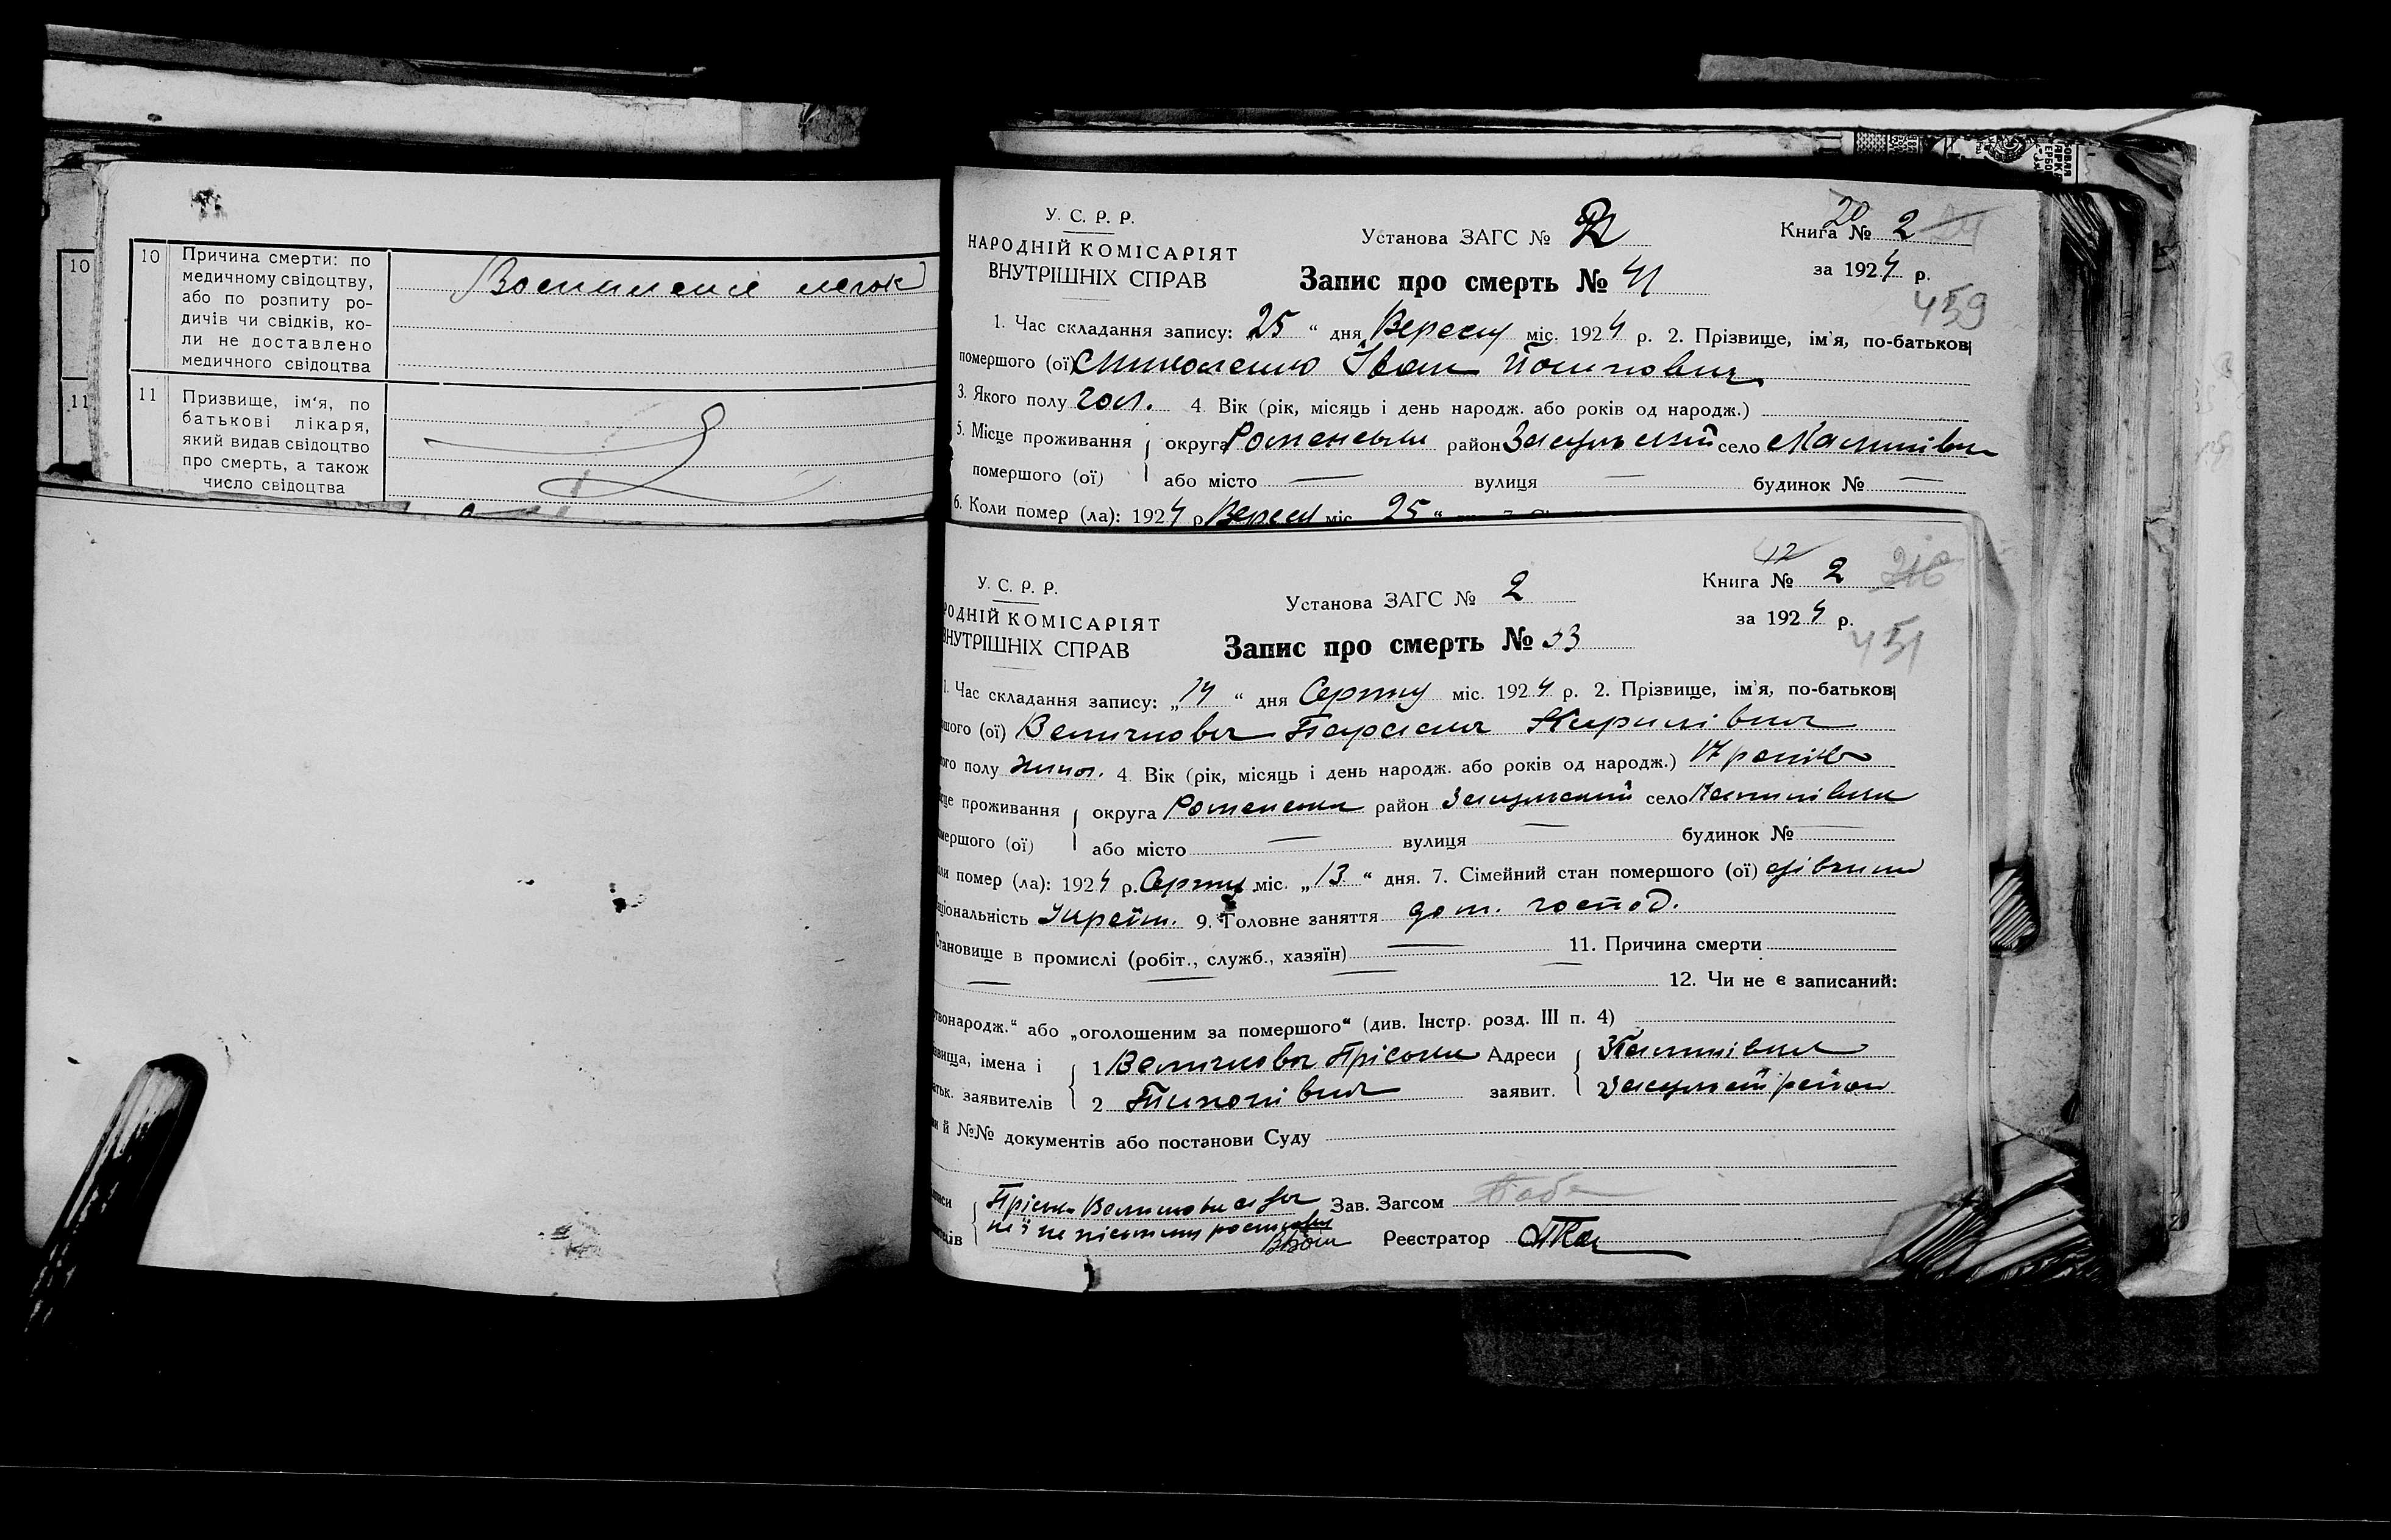 10
11
10 Причина смерти: по
медичному свідоцтву,
або по розпиту ро-
дичів чи свідків, ко-
ли не доставлено
медичного свідоцтва
Воспиление легок
11 Призвище, ім'я, по
батькові лікаря,
який видав свідоцтво
про смерть, а також
число свідоцтва
У. С. Р. Р.
НАРОДНІЙ КОМІСАРІЯТ
ВНУТРІШНІХ СПРАВ
Установа ЗАГС №
Книга № 2
20
за 1924 р.
459
Запис про смерть № 41
1. Час складання запису: „25“ дня Вересня міс. 1924 р. 2. Прізвище, ім'я, по-батькові
помершого (ої) Іван
3. Якого полу чол. 4. Вік (рік, місяць і день народж. або років од народж.)
5. Місце проживання округа Роменська район Засульський село Калинівка
помершого (ої) або місто — вулиця — будинок № —
6. Коли помер (ла): 1924 р. Вересня міс. 25“
У. С. Р. Р.
РОДНІЙ КОМІСАРІЯТ
ВНУТРІШНІХ СПРАВ
Установа ЗАГС № 2
12
Книга № 2
за 1924 р.
451
Запис про смерть № 33
1. Час складання запису: „14“ дня Серпня міс. 1924 р. 2. Прізвище, ім'я, по-батькові
шого (ої) Величкова Параска Кирилівна
ого полу жіноч. 4. Вік (рік, місяць і день народж. або років од народж.) 17 років
сце проживання округа Роменська район Засульський село Калинівка
мершого (ої) або місто — вулиця — будинок № —
ли помер (ла): 1924 р. Серпня міс. „13“ дня. 7. Сімейний стан помершого (ої) дівчина
ціональність Україн. 9. Головне заняття дом. господ.
Становище в промислі (робіт., служб., хазяїн) — 11. Причина смерти
— — — — 12. Чи не є записаний:
твонародж.“ або „оголошеним за помершого“ (див. Інстр. розд. III п. 4)
звища, імена і 1 Величкова Пріська Адреси Калинівка
атьк. заявителів 2 заявит. Засульськ район
и й №№ документів або постанови Суду
Пріська Величкова а за Зав. Загсом
неї неписьменну
Реєстратор